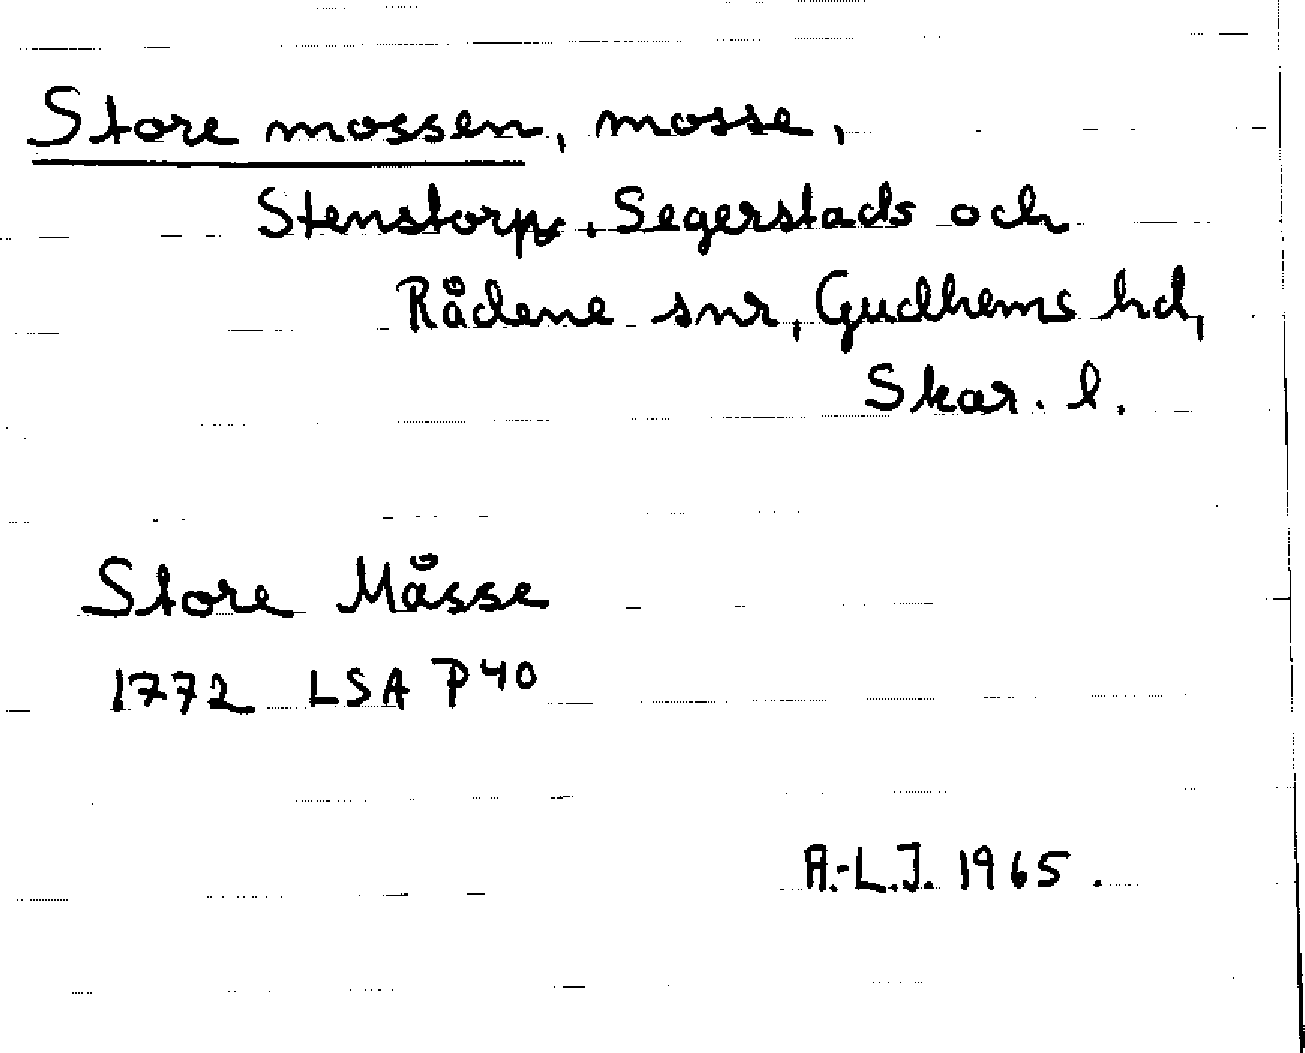 Store mossen, mosse,
Stenstorps, Segerstads och
Rådene snr, Gudhems hd,
Skar. l.
Store Måsse
1772 LSA P40
A.-L.J. 1965.